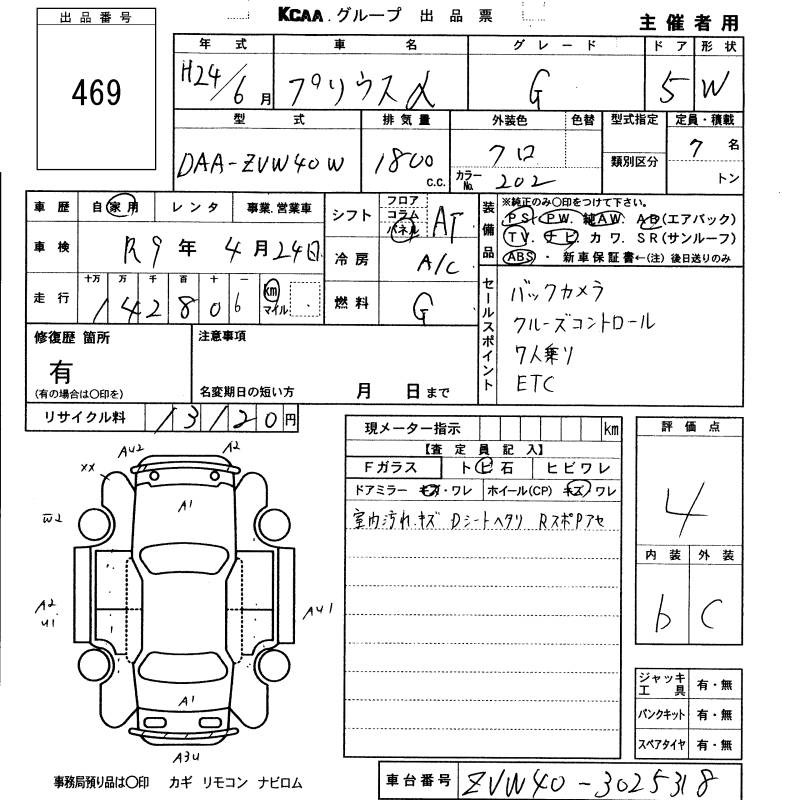 KCAA.グループ 出品票
主催者用
出品番号
469
年式 車名 グレード ドア 形状
H24/6月 プリウスα G 5 W
型式 排気量 外装色 色替 型式指定 定員・積載
DAA-ZVW40W 1800 c.c. クロ 7名
類別区分
カラーNo. 202 トン
車歴 自家用 レンタ 事業.営業車
シフト フロア コラム パネル AT
装備品
※純正のみ〇印をつけて下さい。
PS. PW. 純AW. AB(エアバック)
TV. ナビ. カワ. SR(サンルーフ)
ABS・新車保証書←(注)後日送りのみ
車検 R9年4月24日
冷房 A/C
走行 十万 万 千 百 十 一
142806 km マイル
燃料 G
セールスポイント
バックカメラ
クルーズコントロール
7人乗り
ETC
修復歴 箇所
有
(有の場合は〇印を)
注意事項
名変期日の短い方 月 日まで
リサイクル料 13120円
現メーター指示 km
【査定員記入】
Fガラス トビ石 ヒビワレ
ドアミラー キズ・ワレ ホイール(CP) キズ・ワレ
室内汚れ.キズ Dシートヘタリ RスポPアセ
評価点
4
内装 外装
b C
AU2 A2
XX A1
W2
A2 U1
AU1
A1
A3U
ジャッキ工具 有・無
パンクキット 有・無
スペアタイヤ 有・無
事務局預り品は〇印 カギ リモコン ナビロム
車台番号 ZVW40-3025318